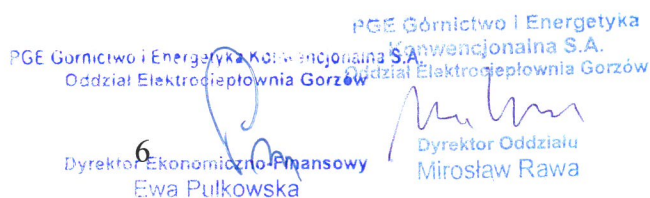 PGE Górnictwo i Energetyka Konwencjonalna S.A.
Oddział Elektrociepłownia Gorzów
6
Dyrektor Ekonomiczno-Finansowy
Ewa Pulkowska
PGE Górnictwo i Energetyka
Konwencjonalna S.A.
Oddział Elektrociepłownia Gorzów
Dyrektor Oddziału
Mirosław Rawa